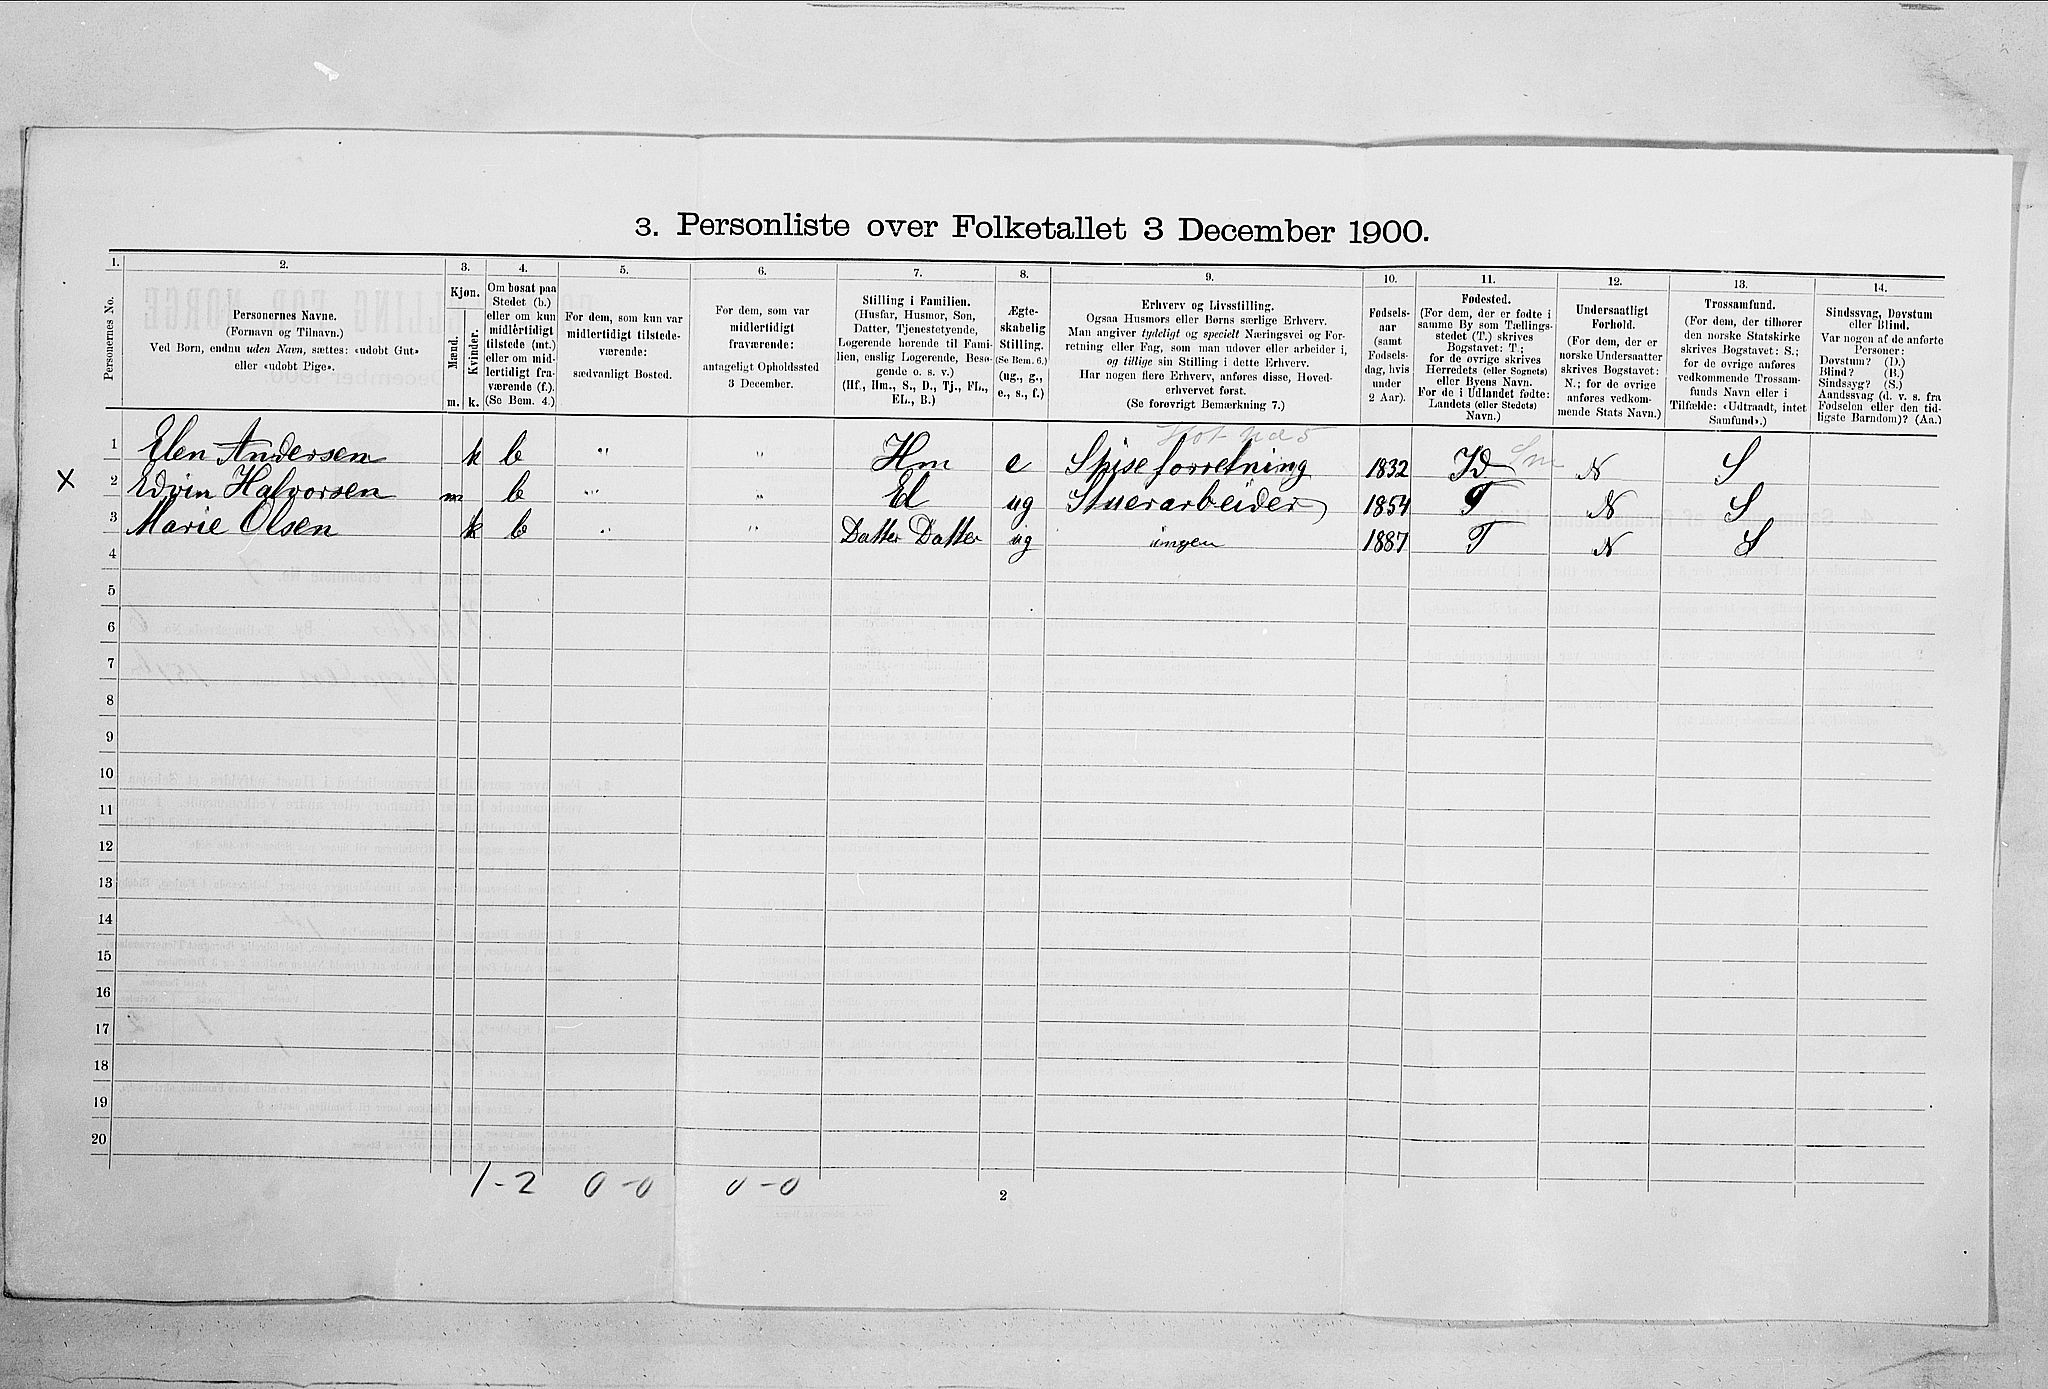 3. Personliste over Folketallet 3 December 1900.
1. 2. 3. 4. 5. 6. 7. 8. 9. 10. 11. 12. 13. 14.
Personernes No.
Personernes Navne.
(Fornavn og Tilnavn.)
Ved Børn, endnu uden Navn, sættes: «udøbt Gut»
eller «udøbt Pige».
Kjøn.
Mænd.
Kvinder.
m. k.
Om bosat paa
Stedet (b.)
eller om kun
midlertidigt
tilstede (mt.)
eller om mid-
lertidigt fra-
værende (f.).
(Se Bem. 4.)
For dem, som kun var
midlertidigt tilstede-
værende:
sædvanligt Bosted.
For dem, som var
midlertidigt
fraværende:
antageligt Opholdssted
3 December.
Stilling i Familien.
(Husfar, Husmor, Søn,
Datter, Tjenestetyende,
Logerende hørende til Fami-
lien, enslig Logerende, Besø-
gende o. s. v.)
(Hf., Hm., S., D., Tj., FL.,
EL., B.)
Ægte-
skabelig
Stilling.
(Se Bem. 6.)
(ug., g.,
e., s., f.)
Erhverv og Livsstilling.
Ogsaa Husmors eller Børns særlige Erhverv.
Man angiver tydeligt og specielt Næringsvei og For-
retning eller Fag, som man udøver eller arbeider i,
og tillige sin Stilling i dette Erhverv.
Har nogen flere Erhverv, anføres disse, Hoved-
erhvervet først.
(Se forøvrigt Bemærkning 7.)
Fødsels-
aar
(samt
Fødsels-
dag, hvis
under
2 Aar).
Fødested.
(For dem, der er fødte i
samme By som Tællings-
stedet (T.) skrives
Bogstavet: T.;
for de øvrige skrives
Herredets (eller Sognets)
eller Byens Navn.
For de i Udlandet fødte:
Landets (eller Stedets)
Navn.)
Undersaatligt
Forhold.
(For dem, der er
norske Undersaatter
skrives Bogstavet:
N.; for de øvrige
anføres vedkom-
mende Stats Navn.)
Trossamfund.
(For dem, der tilhører
den norske Statskirke
skrives Bogstavet: S.;
for de øvrige anføres
vedkommende Trossam-
funds Navn eller i
Tilfælde: «Udtraadt, intet
Samfund».)
Sindssvag, Døvstum
eller Blind.
Var nogen af de anførte
Personer:
Døvstum? (D.)
Blind? (B.)
Sindssyg? (S.)
Aandssvag (d. v. s. fra
Fødselen eller den tid-
ligste Barndom)? (Aa.)
1 Elen Andersen k b " " Hm e Spiseforretning 1832 Id N S
X 2 Edvin Halvorsen m b " " El ug Stuerarbeider 1854 T N S
3 Marie Olsen k b " " Datter Datter ug ingen 1887 T N S
4
5
6
7
8
9
10
11
12
13
14
15
16
17
18
19
20
1-2 0-0 0-0
2